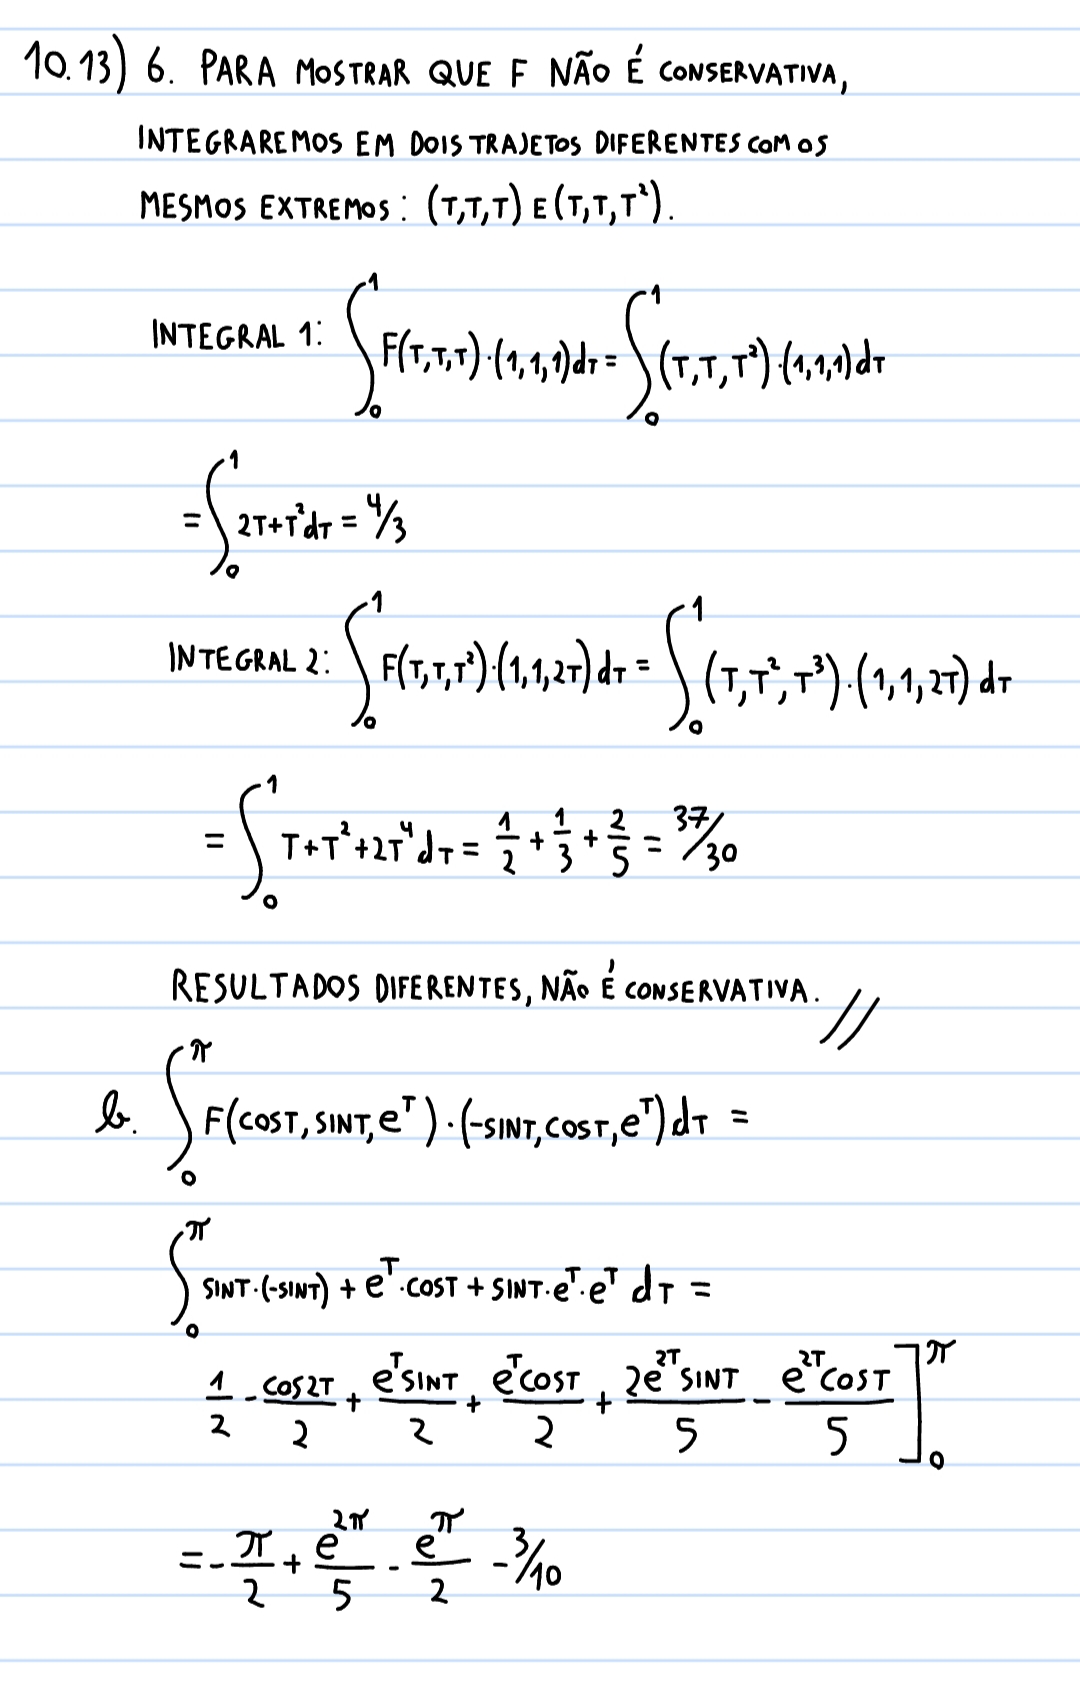 10.13) 6. PARA MOSTRAR QUE F NÃO É CONSERVATIVA,
INTEGRAREMOS EM DOIS TRAJETOS DIFERENTES COM OS
MESMOS EXTREMOS: (T,T,T) E (T,T,T²).
INTEGRAL 1: ∫₀¹ F(T,T,T)·(1,1,1)dT = ∫₀¹ (T,T,T²)·(1,1,1)dT
= ∫₀¹ 2T+T²dT = 4/3
INTEGRAL 2: ∫₀¹ F(T,T,T²)·(1,1,2T)dT = ∫₀¹ (T,T²,T³)·(1,1,2T)dT
= ∫₀¹ T+T²+2T⁴dT = 1/2 + 1/3 + 2/5 = 37/30
RESULTADOS DIFERENTES, NÃO É CONSERVATIVA. //
b. ∫₀^π F(COST, SINT, e^T)·(-SINT, COST, e^T)dT =
∫₀^π SINT·(-SINT) + e^T·COST + SINT·e^T·e^T dT =
1/2 - COS2T/2 + e^T SINT/2 + e^T COST/2 + 2e^2T SINT/5 - e^2T COST/5 ]₀^π
= -π/2 + e^2π/5 - e^π/2 - 3/10